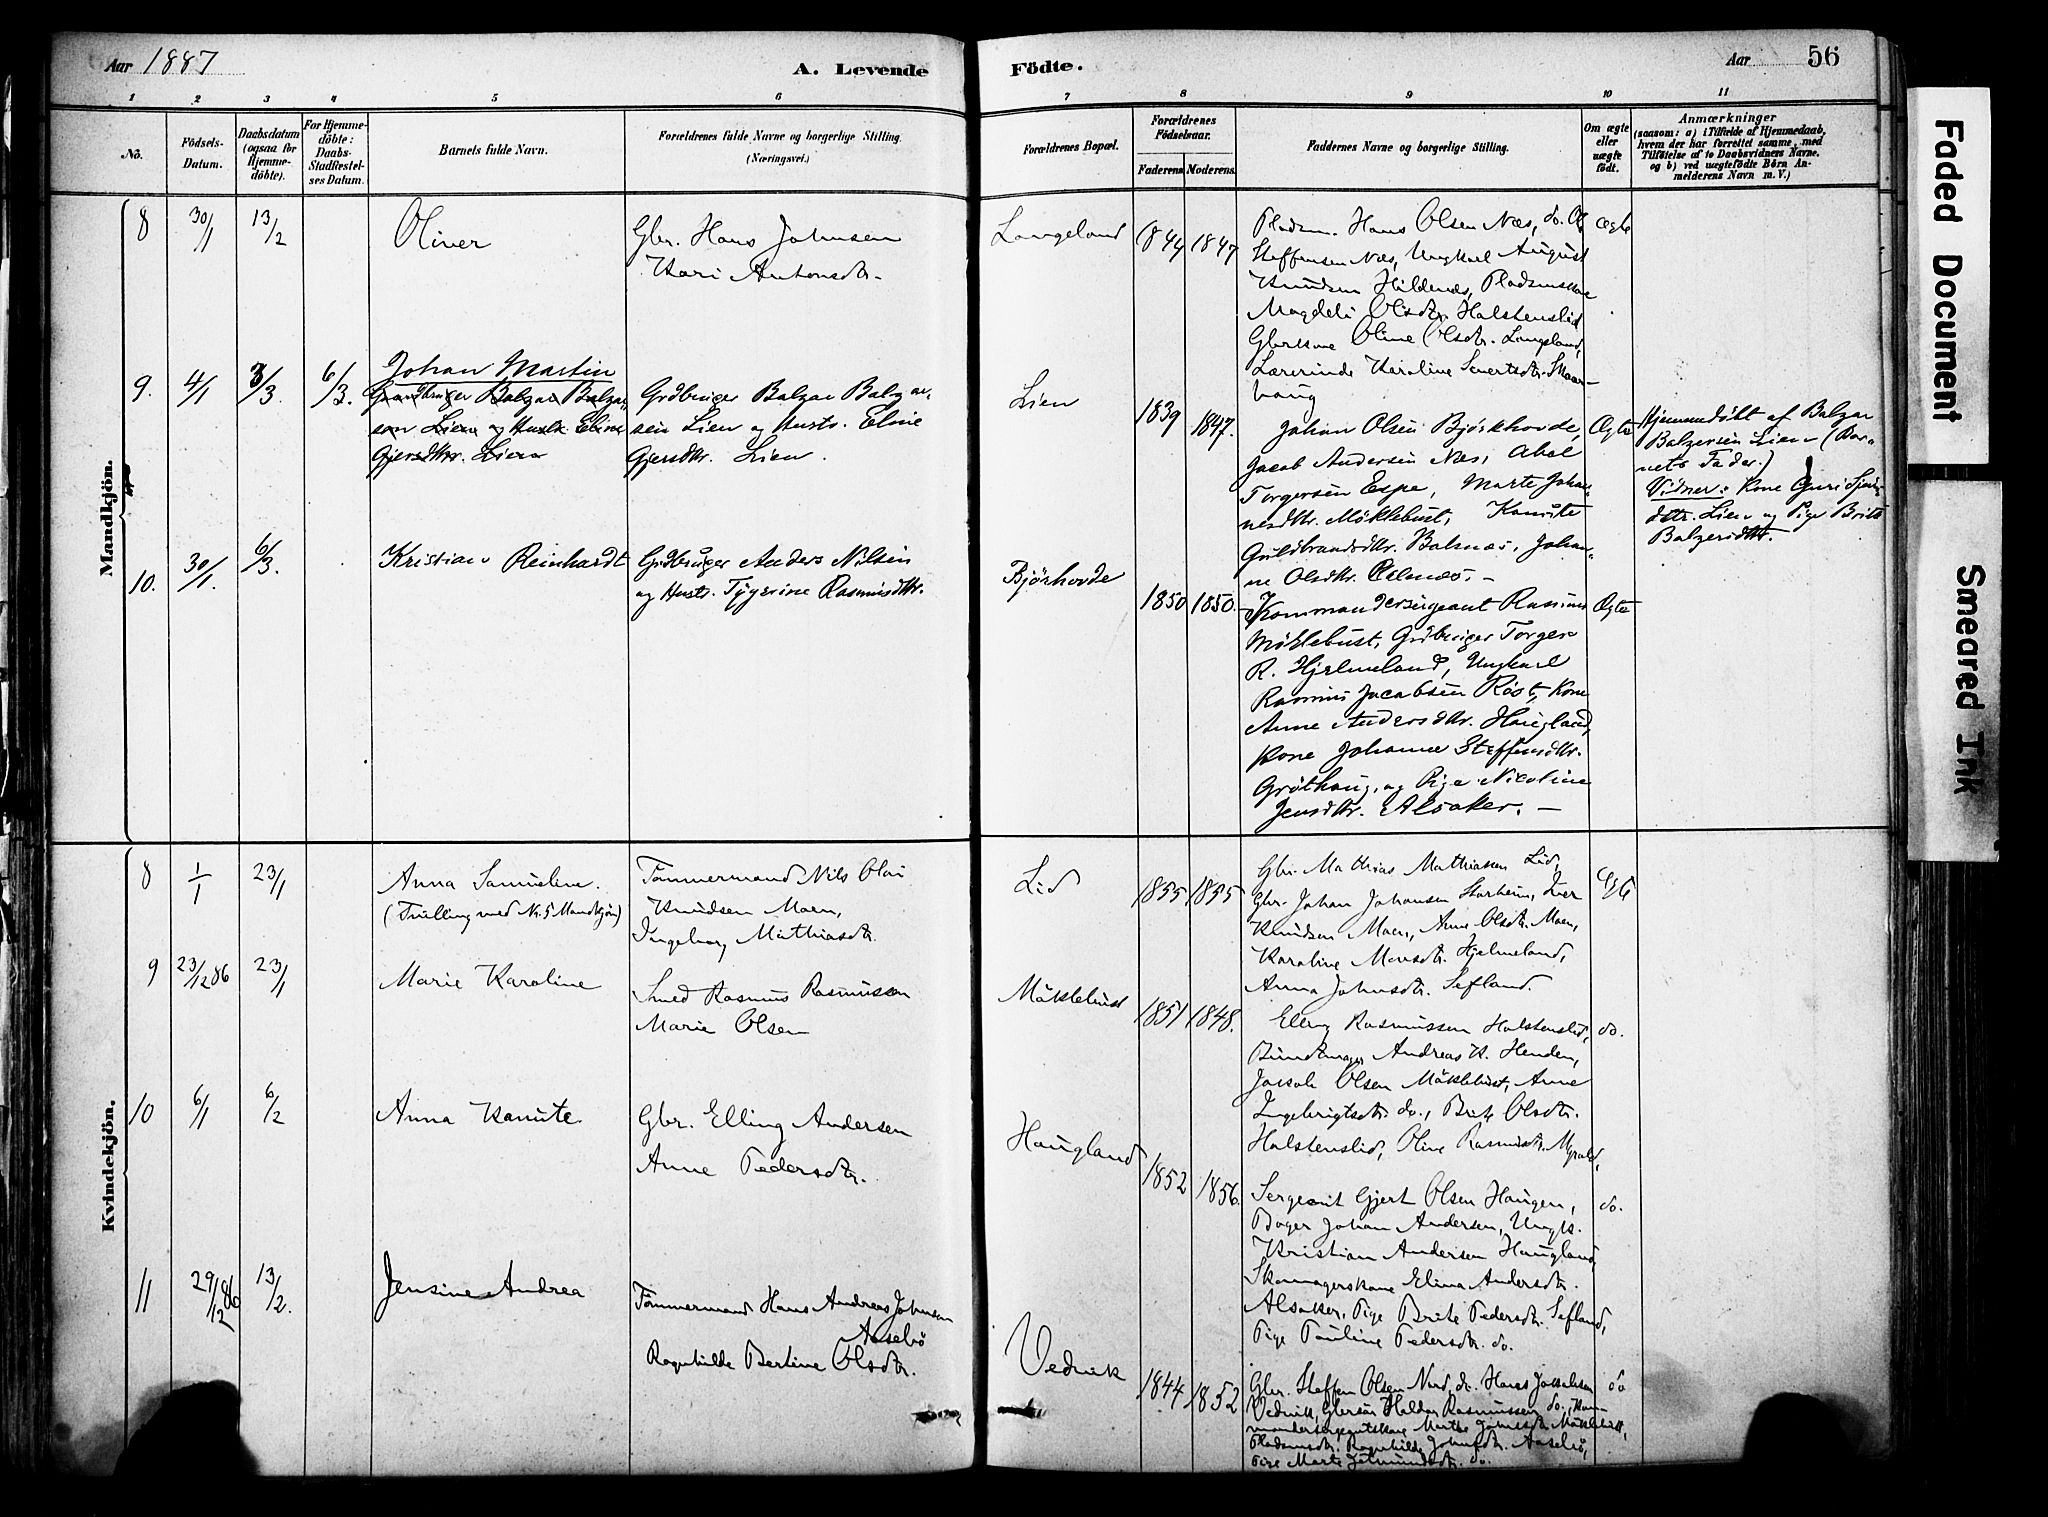 Aar 1887
A. Levende
Födte.
Aar
56
1 2 3 4 5 6 7 8 9 10 11
No.
Födsels-
Datum.
Daabsdatum
(ogsaa for
Hjemme-
döbte).
For Hjemme-
döbte:
Daabs-
Stadfæstel-
ses Datum.
Barnets fulde Navn.
Forældrenes fulde Navne og borgerlige Stilling.
(Næringsvei.)
Forældrenes Bopæl.
Forældrenes
Födselsaar.
Faderens
Moderens.
Faddernes Navne og borgerlige Stilling.
Om ægte
eller
uægte
födt.
Anmærkninger
(saasom: a) i Tilfælde af Hjemmedaab,
hvem der har forrettet samme, med
Tilföielse af to Daabsvidners Navne.
og b) ved uægtefödte Börn An-
melderens Navn m. V.)
Mandkjön.
8
30/1
13/2
Oliver
Gbr. Hans Johnsen
Kari Antonsdtr.
Langeland
1844
1847
Pladsm. Hans Olsen Næs, do. Ol
Steffensen Næs, Ungkarl August
Knudsen Hildenæs, Pladsmskone
Magdeli Olsdtr. Halstenslid
Gbrkone Oline Olsdtr. Langeland,
Lærerinde Karoline Sivertsdtr. Skaar-
haug
ægte
9.
4/1
3/3.
6/3.
Johan Martin
Gaardbruger Balzar Balzar-
sen Lien og Hustr. Eline
Gjersdtr. Lien
Grdbruger Balzar Balzar-
sen Lien og Hustr. Eline
Gjersdtr. Lien.
Lien
1839
1847.
Johan Olsen Bjørkhovde,
Jacob Andersen Næs, Abal
Torgersen Espe, Marte Johan-
nesdtr. Møklebust, Kanute
Guldbrandsdtr. Balnæs, Johan-
ne Olsdtr.
Ægte
Hjemmedøbt af Balzar
Balzersen Lien (Bar-
nets Fader.)
Vidner: Kone Guri
dtr. Lien og Pige Britt
Balzersdtr.
10.
30/1.
6/3.
Kristian Reinhardt
Grdbruger Anders Nilsen
og Hustr. Tygerine Rasmusdtr.
Bjørhovde
1850
1850.
Kommandersergeant Rasmus
Møklebust, Grdbruger Torger
R. Hjelmeland, Ungkarl
Rasmus Jacobsen Røst, Kone
Anne Andersdtr. Haugland,
Kone Johanne Steffensdtr.
Grøthaug, og Pige Nicoline
Jensdtr. Alsaker. –
Ægte
Kvindekjön.
8
1/1
23/1
Anna Samueline.
(Tvilling med Nr. 5 Mandkjøn)
Tømmermand Nils Olai
Knudsen Moen,
Ingeborg Mathiasdtr.
Lid
1855
1855
Gbr. Mathias Mathiassen Lid,
Gbr. Johan Johansen Storheim, Iver
Knudsen Moen, Anne Olsdtr. Moen,
Karoline Monsdtr. Hjelmeland,
Anna Johnsdtr. Sefland.
9
23/12 86
23/1
Marie Karoline
Smed Rasmus Rasmussen
Marie Olsen
Måklebust
1851
1848.
Elling Rasmussen Halstenslid,
Andreas K. Henden,
Jakob Olsen Måklebust, Anne
Ingebrigtsdtr. do., Brite Olsdtr.
Halstenslid, Oline Rasmusdtr. Myrold,
do.
10
6/1
6/2
Anna Kanute
Gbr. Elling Andersen
Anne Pedersdtr.
Haugland
1852
1856.
Sergeant Gjert Olsen Haugen,
Bager Johan Andersen, Ungk.
Kristian Andersen Haugland,
Skomagerskone Elina Andersdtr.
Alsaker, Pige Brite Pedersdtr. Sefland,
Pige Pauline Pedersdtr. do.
do.
11
29/12 86
13/2.
Jensine Andrea
Tømmermand Hans Andreas Johnsen
Aasebø
Ragnhilde Bertine Olsdtr.
Vedvik
1844
1852
Gbr. Steffen Olsen Nord, do. Hans Jakobsen
Vedvik, Gbrsøn Haldor Rasmussen do., Kom-
mandersergeantskone Marthe Johnsdtr. Måklebust,
Pladsmdtr. Ragnhilde Johnsdtr. Aasebø,
Pige Marte Jetmundsdtr. do.
do
Faded Document
Smeared Ink